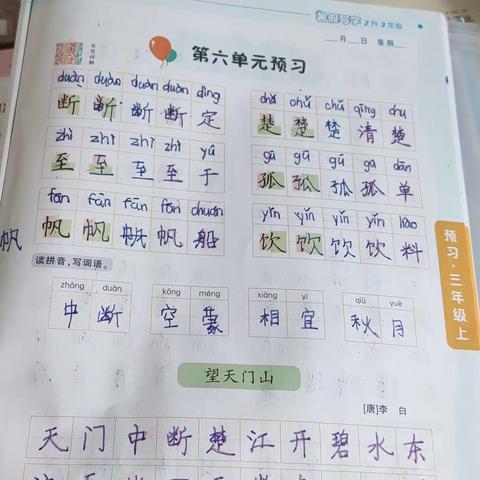 暑假写字 2升3年级
月 日 星期
书写详解
第六单元预习
duàn duàn duàn duàn dìng
断 断 断 断 定
chǔ chǔ chǔ qīng chu
楚 楚 楚 清 楚
zhì zhì zhì zhì yú
至 至 至 至 于
gū gū gū gū dān
孤 孤 孤 孤 单
fān fān fān fān chuán
帆 帆 帆 帆 船
yǐn yǐn yǐn yǐn liào
饮 饮 饮 饮 料
帆
读拼音,写词语。
zhōng duàn kōng méng xiāng yí qiū yuè
中 断 空 蒙 相 宜 秋 月
望天门山
[唐]李 白
天 门 中 断 楚 江 开 碧 水 东
预习·三年级上